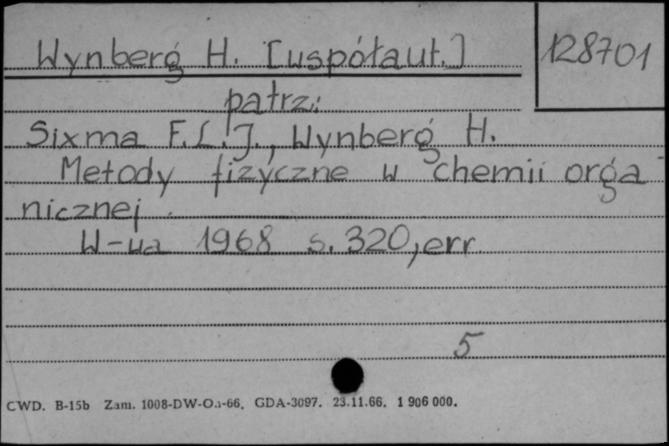 Wynberg H. [współaut.]
128701
patrz:
Sixma F.L.J., Wynberg H.
Metody fizyczne w chemii orga-
nicznej.
W-wa 1968 s. 320, err
5
CWD. B-15b Zam. 1008-DW-O.-66. GDA-3097. 23.11.66. 1 906 000.